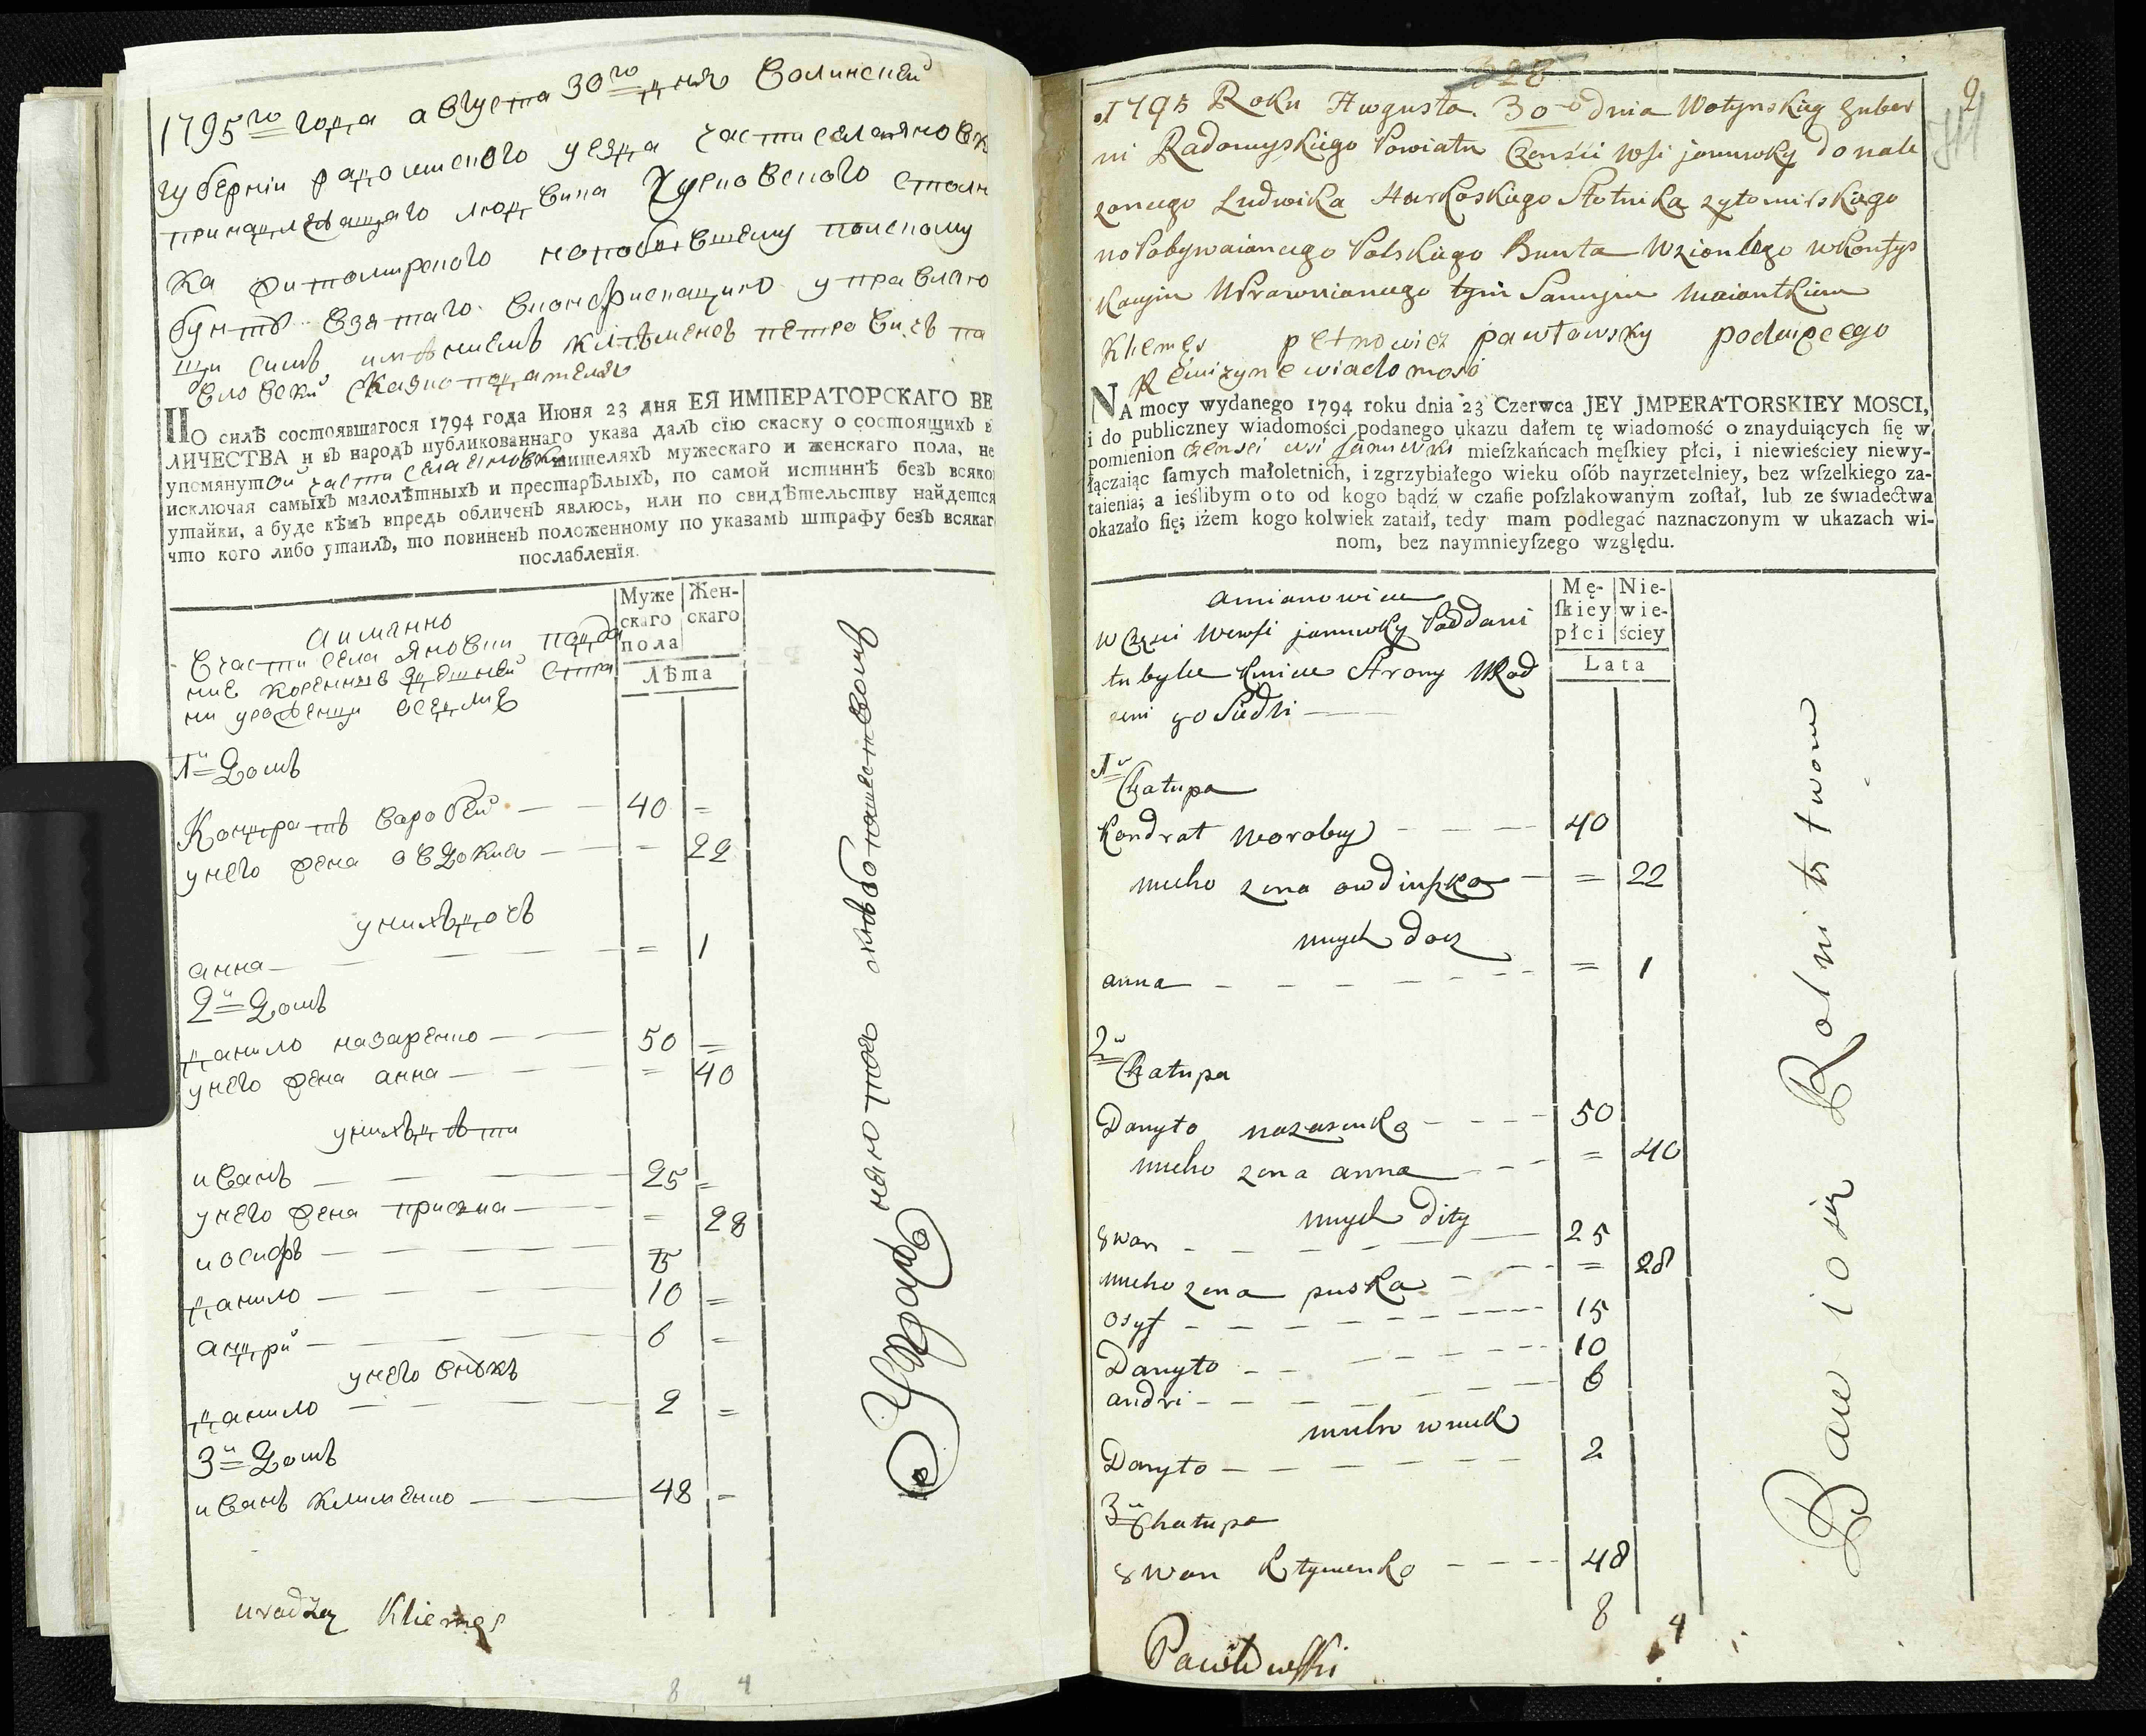 1795го года августа 30го дня Волинской
губерніи радомисского уезда части села яновки
принадлежащаго людвика Хурковского столни
ка житомирского
бунтъ взятаго вконфискацию управляю
щи симъ имѣниемъ Клѣменсъ петровичъ па
вловски сказкоподатель
ПО силѣ состоявшагося 1794 года Июня 23 дня ЕЯ ИМПЕРАТОРСКАГО ВЕ
ЛИЧЕСТВА и въ народъ публикованнаго указа далъ сїю скаску о состоящихъ в
упомянутой части села яновки жителяхъ мужескаго и женскаго пола, не
исключая самыхъ малолѣтныхъ и престарѣлыхъ, по самой истиннѣ безъ всяко
утайки, а буде кѣмъ впредь обличенъ явлюсь, или по свидѣтельству найдется
что кого либо утаилъ, то повиненъ положенному по указамъ штрафу безъ всякаг
послабленїя.
Муже Жен-
скаго скаго
пола
Лѣта
а имянно
Вчасти села яновки подда
ние коренние здешней стра
ни урожѣнци
1й Домъ
Кондратъ варобей 40 =
унего жена овдокия = 22
унихъ дочъ
анна = 1
2й Домъ
данило назаренко 50 =
унего жена анна = 40
унихъ дѣти
иванъ 25 =
унего жена приска = 28
иосифъ 15
данило 10 =
андри 6 =
унего внукъ
данило 2 =
3й Домъ
иванъ клименко 48 =
uradzca Kliemęs
8 4
328
2
1795 Roku Awgusta 30-o dnia Wołynskiey guber
ni Radomyskiego Powiatu Czensci Wsi januwky donale
zoncego Ludwika Harkoskiego Stolnika zytomirskiego
noPobywaioncego Polskiego Bunta Wzientego wkonfys
kacyiu UPrawuiancego tym Samym maiontkiem
Kliemęs petrowicz pawłowsky podaięcego
Rewizyine wiadomosć
NA mocy wydanego 1794 roku dnia 23 Czerwca JEY JMPERATORSKIEY MOSCI,
i do publiczney wiadomości podanego ukazu dałem tę wiadomość o znayduiących ſię w
pomienion czensci wsi Januwki mieſzkańcach męſkiey płci, i niewieściey niewy-
łączaiąc ſamych małoletnich, i zgrzybiałego wieku oſób nayrzetelniey, bez wſzelkiego za-
taienia; a ieślibym oto od kogo bądź w czaſie poſzlakowanym zoſtał, lub ze świadectwa
okazało ſię; iżem kogo kolwiek zataił, tedy mam podlegać naznaczonym w ukazach wi-
nom, bez naymnieyſzego względu.
Mę- Nie-
ſkiey wie-
płci ściey
Lata
amianowicie
w Częsci Wewsi januwky Poddani
tubylce Strony
1й
Chałupa
Kondrat Worobey 40
nueho zona owdiuszka = 22
unych docz
anna = 1
2й
Chałupa
Danyło nazarenko 50
nueho zona anna = 40
unych dity
Iwan 25
nueho zona puska = 28
osyf 15
Danyło 10
andri 6
nueho wnuk
Danyło 2
3й Chałupa
Iwan Kłymenko 48
8 4
Bawio się Rolnitstwom
Pawłowſki